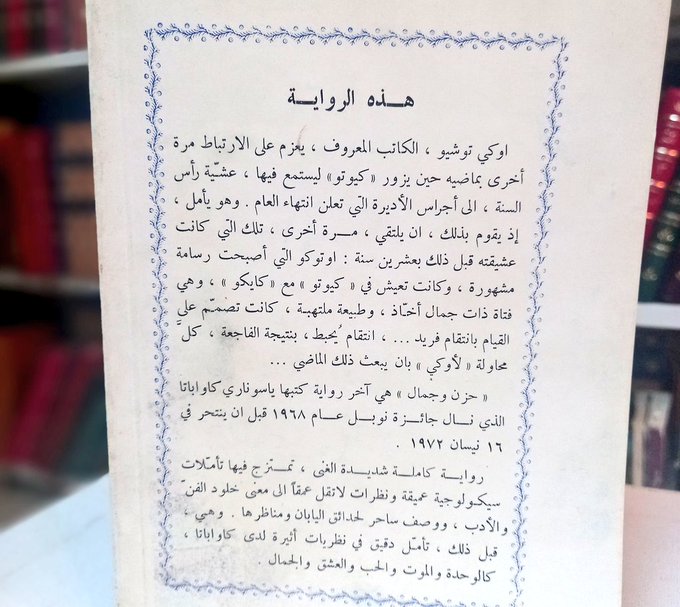 هــذه الروايــة
اوكي توشيو ، الكاتب المعروف ، يعزم على الارتباط مرة
أخرى بماضيه حين يزور «كيوتو» ليستمع فيها ، عشيّة رأس
السنة ، الى أجراس الأديرة التي تعلن انتهاء العام . وهو يأمل ،
إذ يقوم بذلك ، ان يلتقي ، مــرة أخرى ، تلك التي كانت
عشيقته قبل ذلك بعشرين سنة : اوتوكو التي أصبحت رسامة
مشهورة ، وكانت تعيش في « كيوتو » مع « كايكو » ، وهي
فتاة ذات جمال أخّاذ ، وطبيعة ملتهبة ، كانت تصمّم على
القيام بانتقام فريد ... ، انتقام يُحبط ، بنتيجة الفاجعة ، كلَّ
محاولة «لأوكي » بان يبعث ذلك الماضي ...
« حزن وجمال » هي آخر رواية كتبها ياسوناري كاواباتا
الذي نــال جائــزة نوبــل عــام ١٩٦٨ قبل ان ينتحر في
١٦ نيسان ١٩٧٢ .
روايــة كاملــة شديــدة الغنى ، تمــتزج فيها تأمّلات
سيكــولوجية عميقة ونظرات لاتقل عمقاً الى معنى خلود الفنّ
والأدب ، ووصف ساحر لحدائق اليابان ومناظرها . وهــي ،
قبل ذلك ، تأمّــل دقيق في نظريات أثيرة لدى كاواباتا ،
كالوحدة والموت والحب والعشق والجمال .